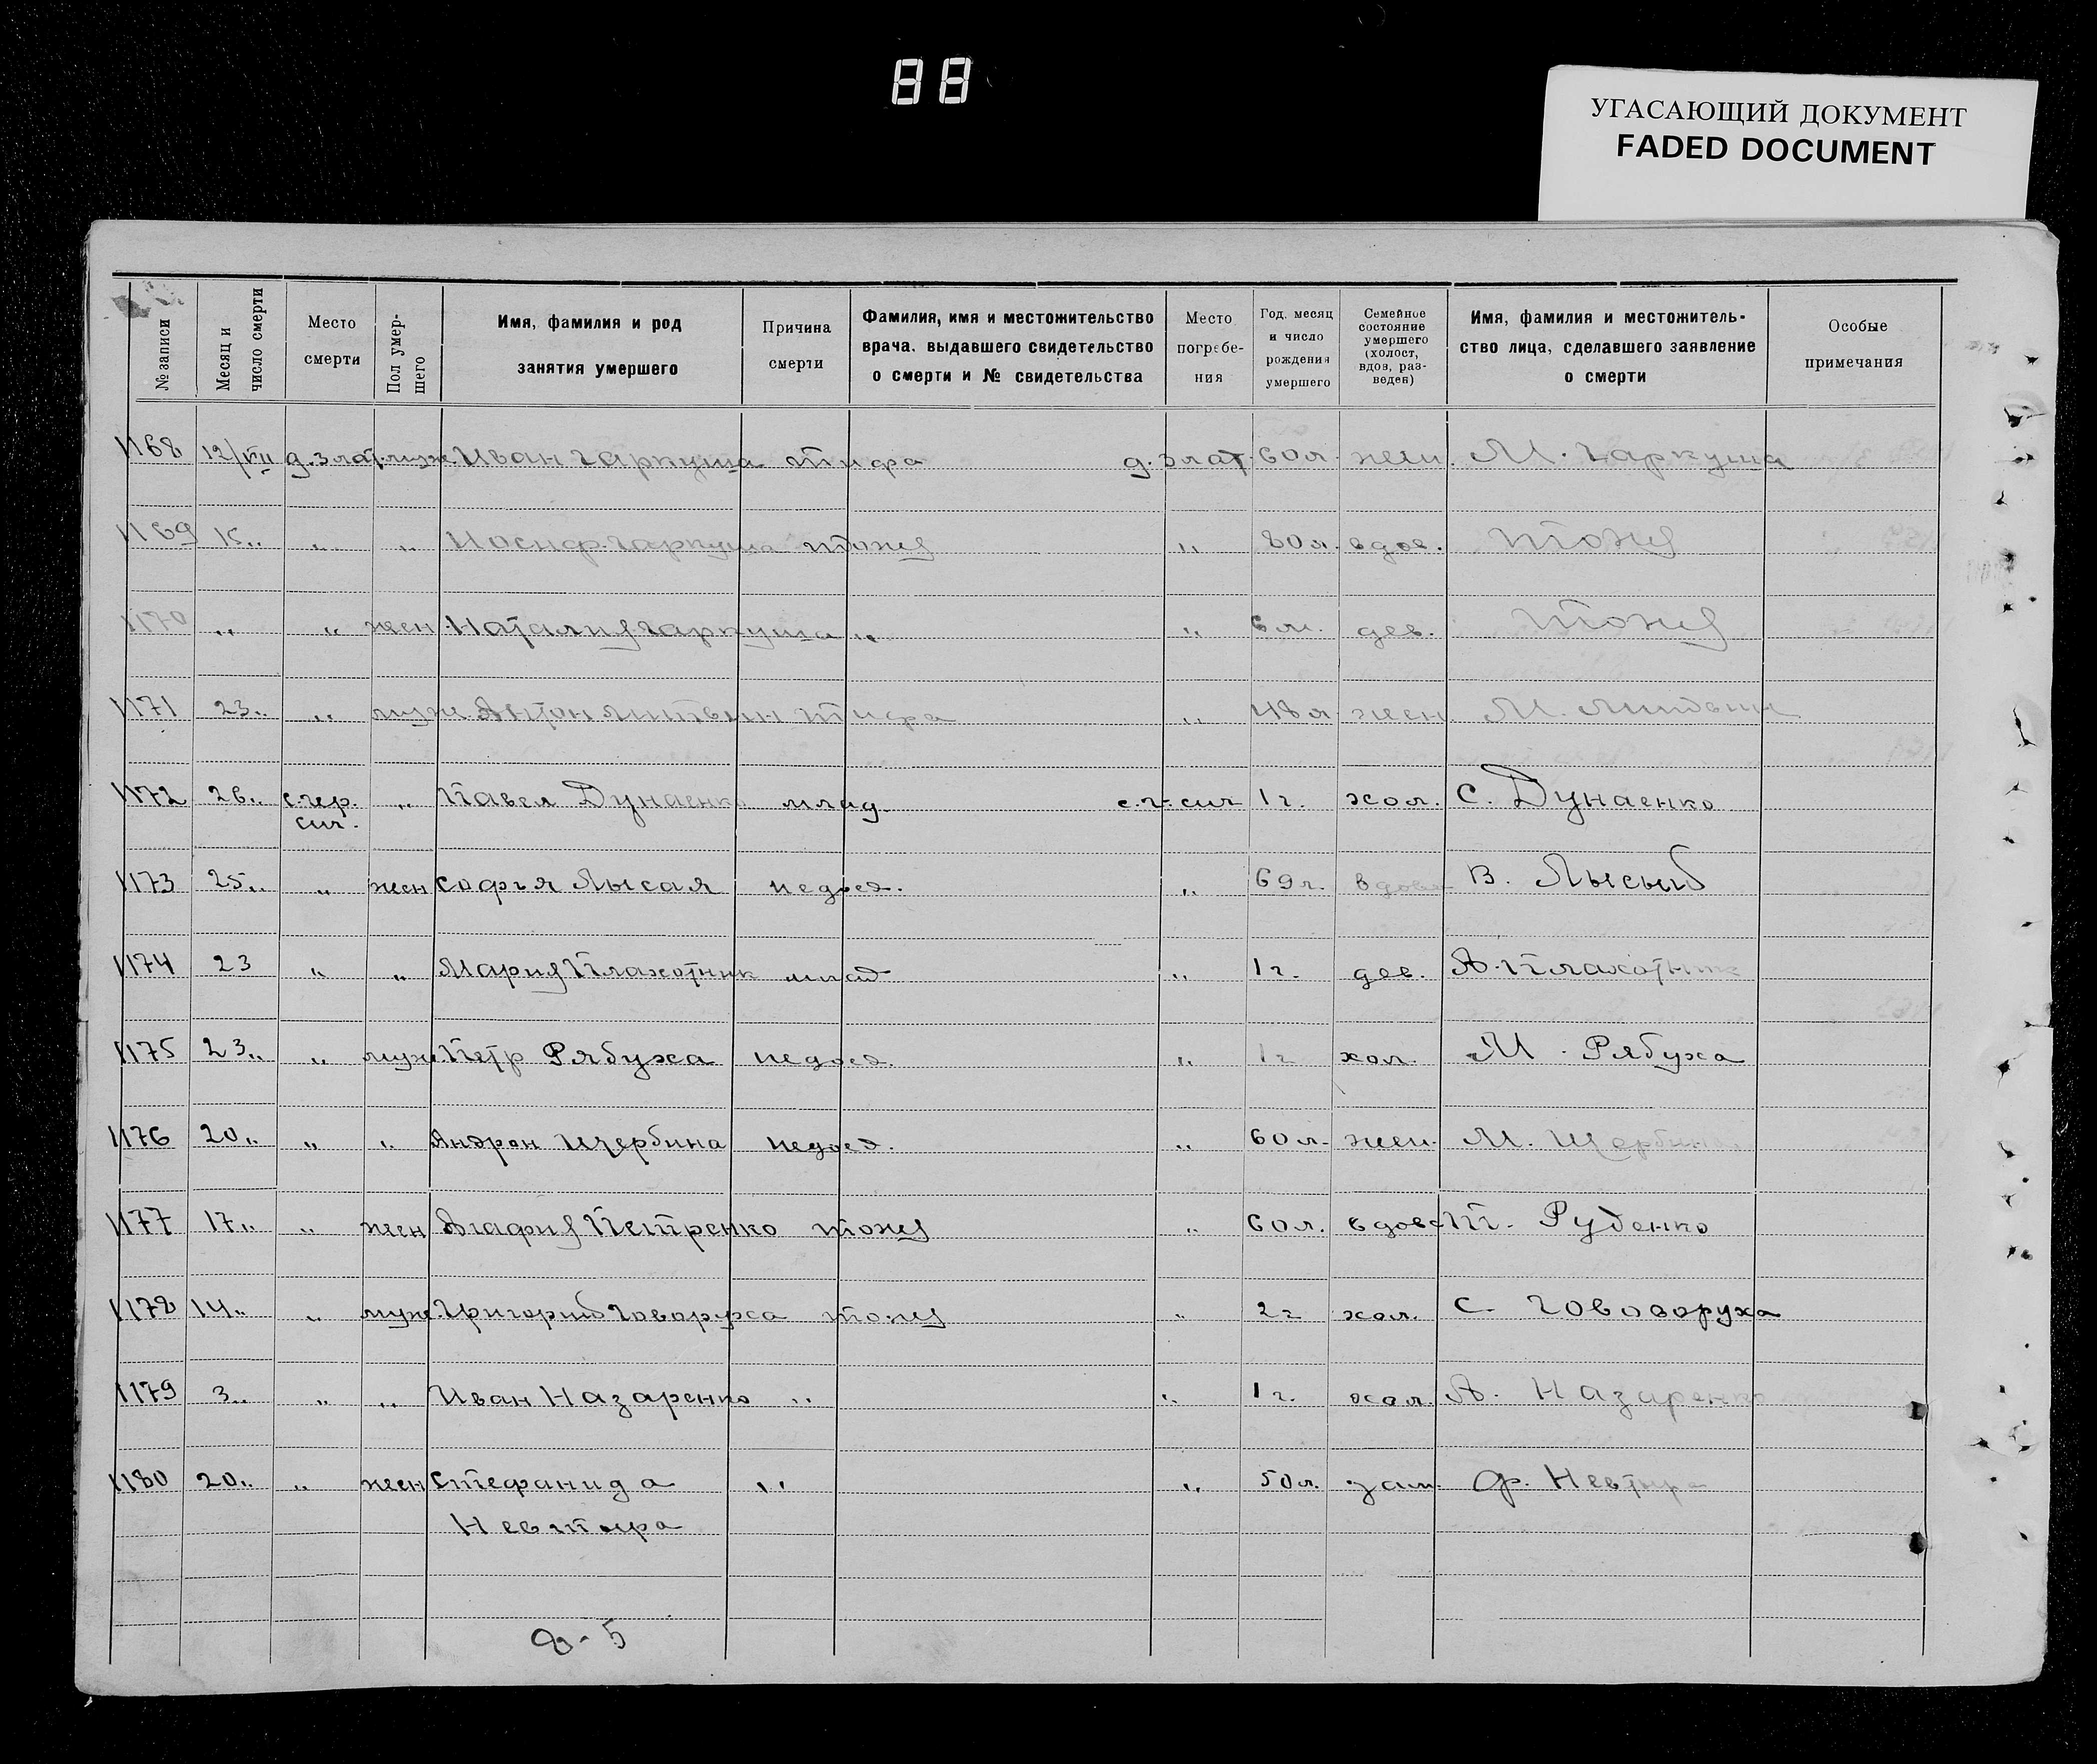 88
УГАСАЮЩИЙ ДОКУМЕНТ
FADED DOCUMENT
№ записи
Месяц и число смерти
Место смерти
Пол умер-шего
Имя, фамилия и род занятия умершего
Причина смерти
Фамилия, имя и местожительство врача, выдавшего свидетельство о смерти и № свидетельства
Место погребе-ния
Год, месяц и число рождения умершего
Семейное состояние умершего (холост, вдов, раз-веден)
Имя, фамилия и местожитель-ство лица, сделавшего заявление о смерти
Особые примечания
1168 12/VII д. Злат. муж. Иван Гаркуша тифа д. Злат 60 л. жен. М. Гаркуша
1169 15 „ „ „ Иосиф Гаркуша тоже „ 80 л. вдов. тоже
1170 „ „ жен. Наталия Гаркуша „ „ 6 м. дев. тоже
1171 23 „ „ муж. Антон Литвин тифа „ 48 л. жен. М. Литвин
1172 26 „ с. чер. „ Павел Дунаенко млад. с. ч. сиг 1 г. хол. С. Дунаенко
сиг.
1173 25 „ „ жен софия Лысая недоед. „ 69 л. вдова В. Лысый
1174 23 „ „ Мария Плахотник млад „ 1 г. дев. А. Плахотник
1175 23 „ „ муж. Петр Рябуха недоед. „ 1 г хол. М. Рябуха
1176 20 „ „ „ Андрон Щербина недоед. „ 60 л. жен. М. Щербина
1177 17 „ „ жен Агафия Петренко тоже „ 60 л. вдова П. Руденко
1178 14 „ „ муж. Григорий Говоруха тоже „ 2 г хол. С. Гововоруха
1179 3 „ „ „ Иван Назаренко „ „ 1 г. хол. А. Назаренко
1180 20 „ „ жен Стефанида „ „ 50 л. зам. Ф. Невтира
Невтира
8-5